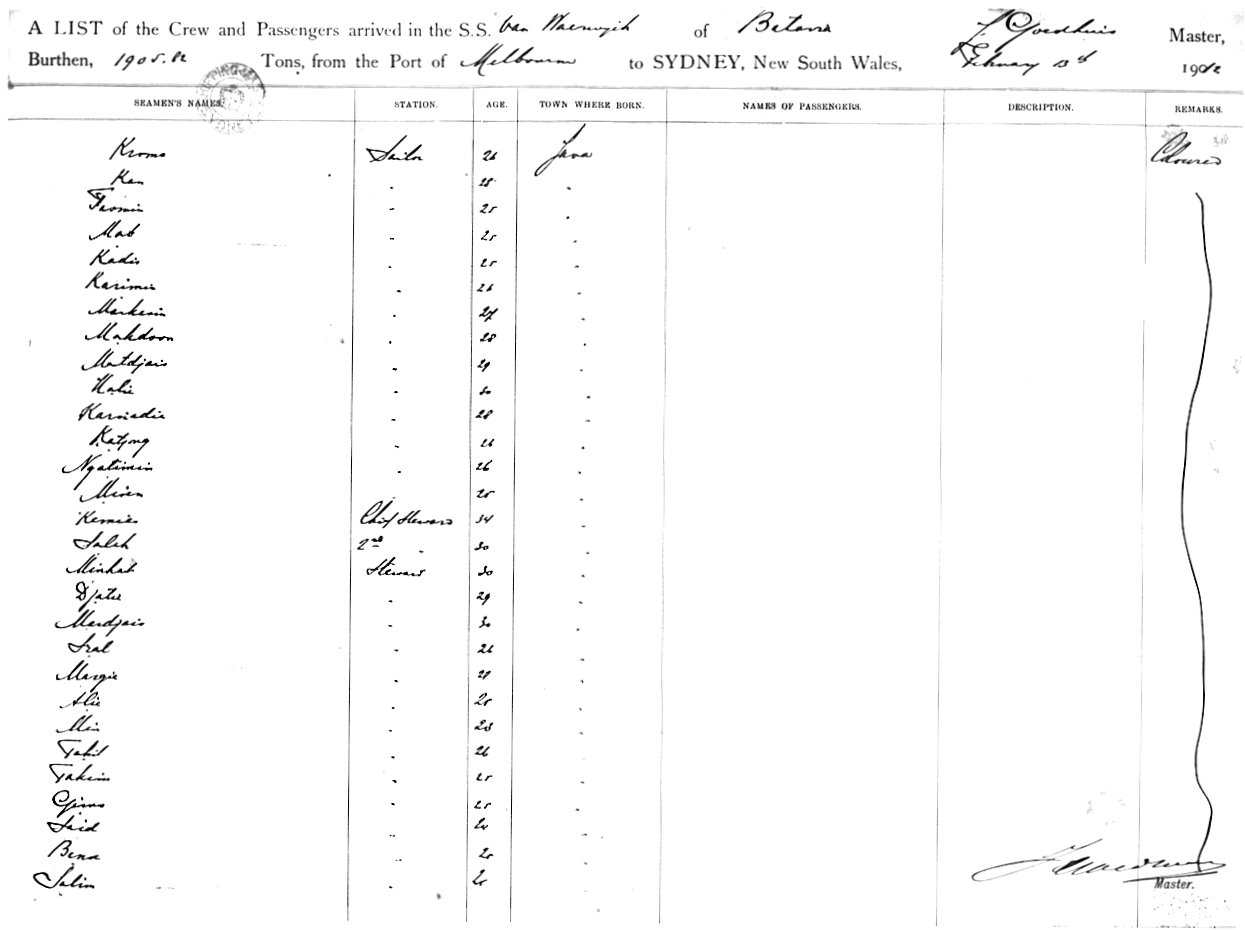 A LIST of the Crew and Passengers arrived in the S.S. Van Waerwijk of Batavia F Goedhuis Master,
Burthen, 1905.82 Tons, from the Port of Melbourne to SYDNEY, New South Wales, February 13th 1912
SEAMEN'S NAMES. STATION. AGE. TOWN WHERE BORN. NAMES OF PASSENGERS. DESCRIPTION. REMARKS.
Kromo Sailor 26 Java Coloured
Kan " 28 "
Tasmin " 25 "
Mat " 25 "
Kadis " 25 "
Karimin " 26 "
Markasin " 27 "
Makdoon " 28 "
Matdjais " 29 "
Halie " 30 "
Karsiadie " 28 "
Katjong " 26 "
Ngatimin " 26 "
Miren " 25 "
Kemies Chief Steward 34 "
Saleh 2nd " 30 "
Minhat Steward 30 "
Djatie " 29 "
Mardjais " 30 "
Sral " 26 "
Margie " 27 "
Alie " 25 "
Min " 28 "
Tabil " 26 "
Takim " 25 "
" 25 "
Said " "
Bena " "
Salim " "
Master.